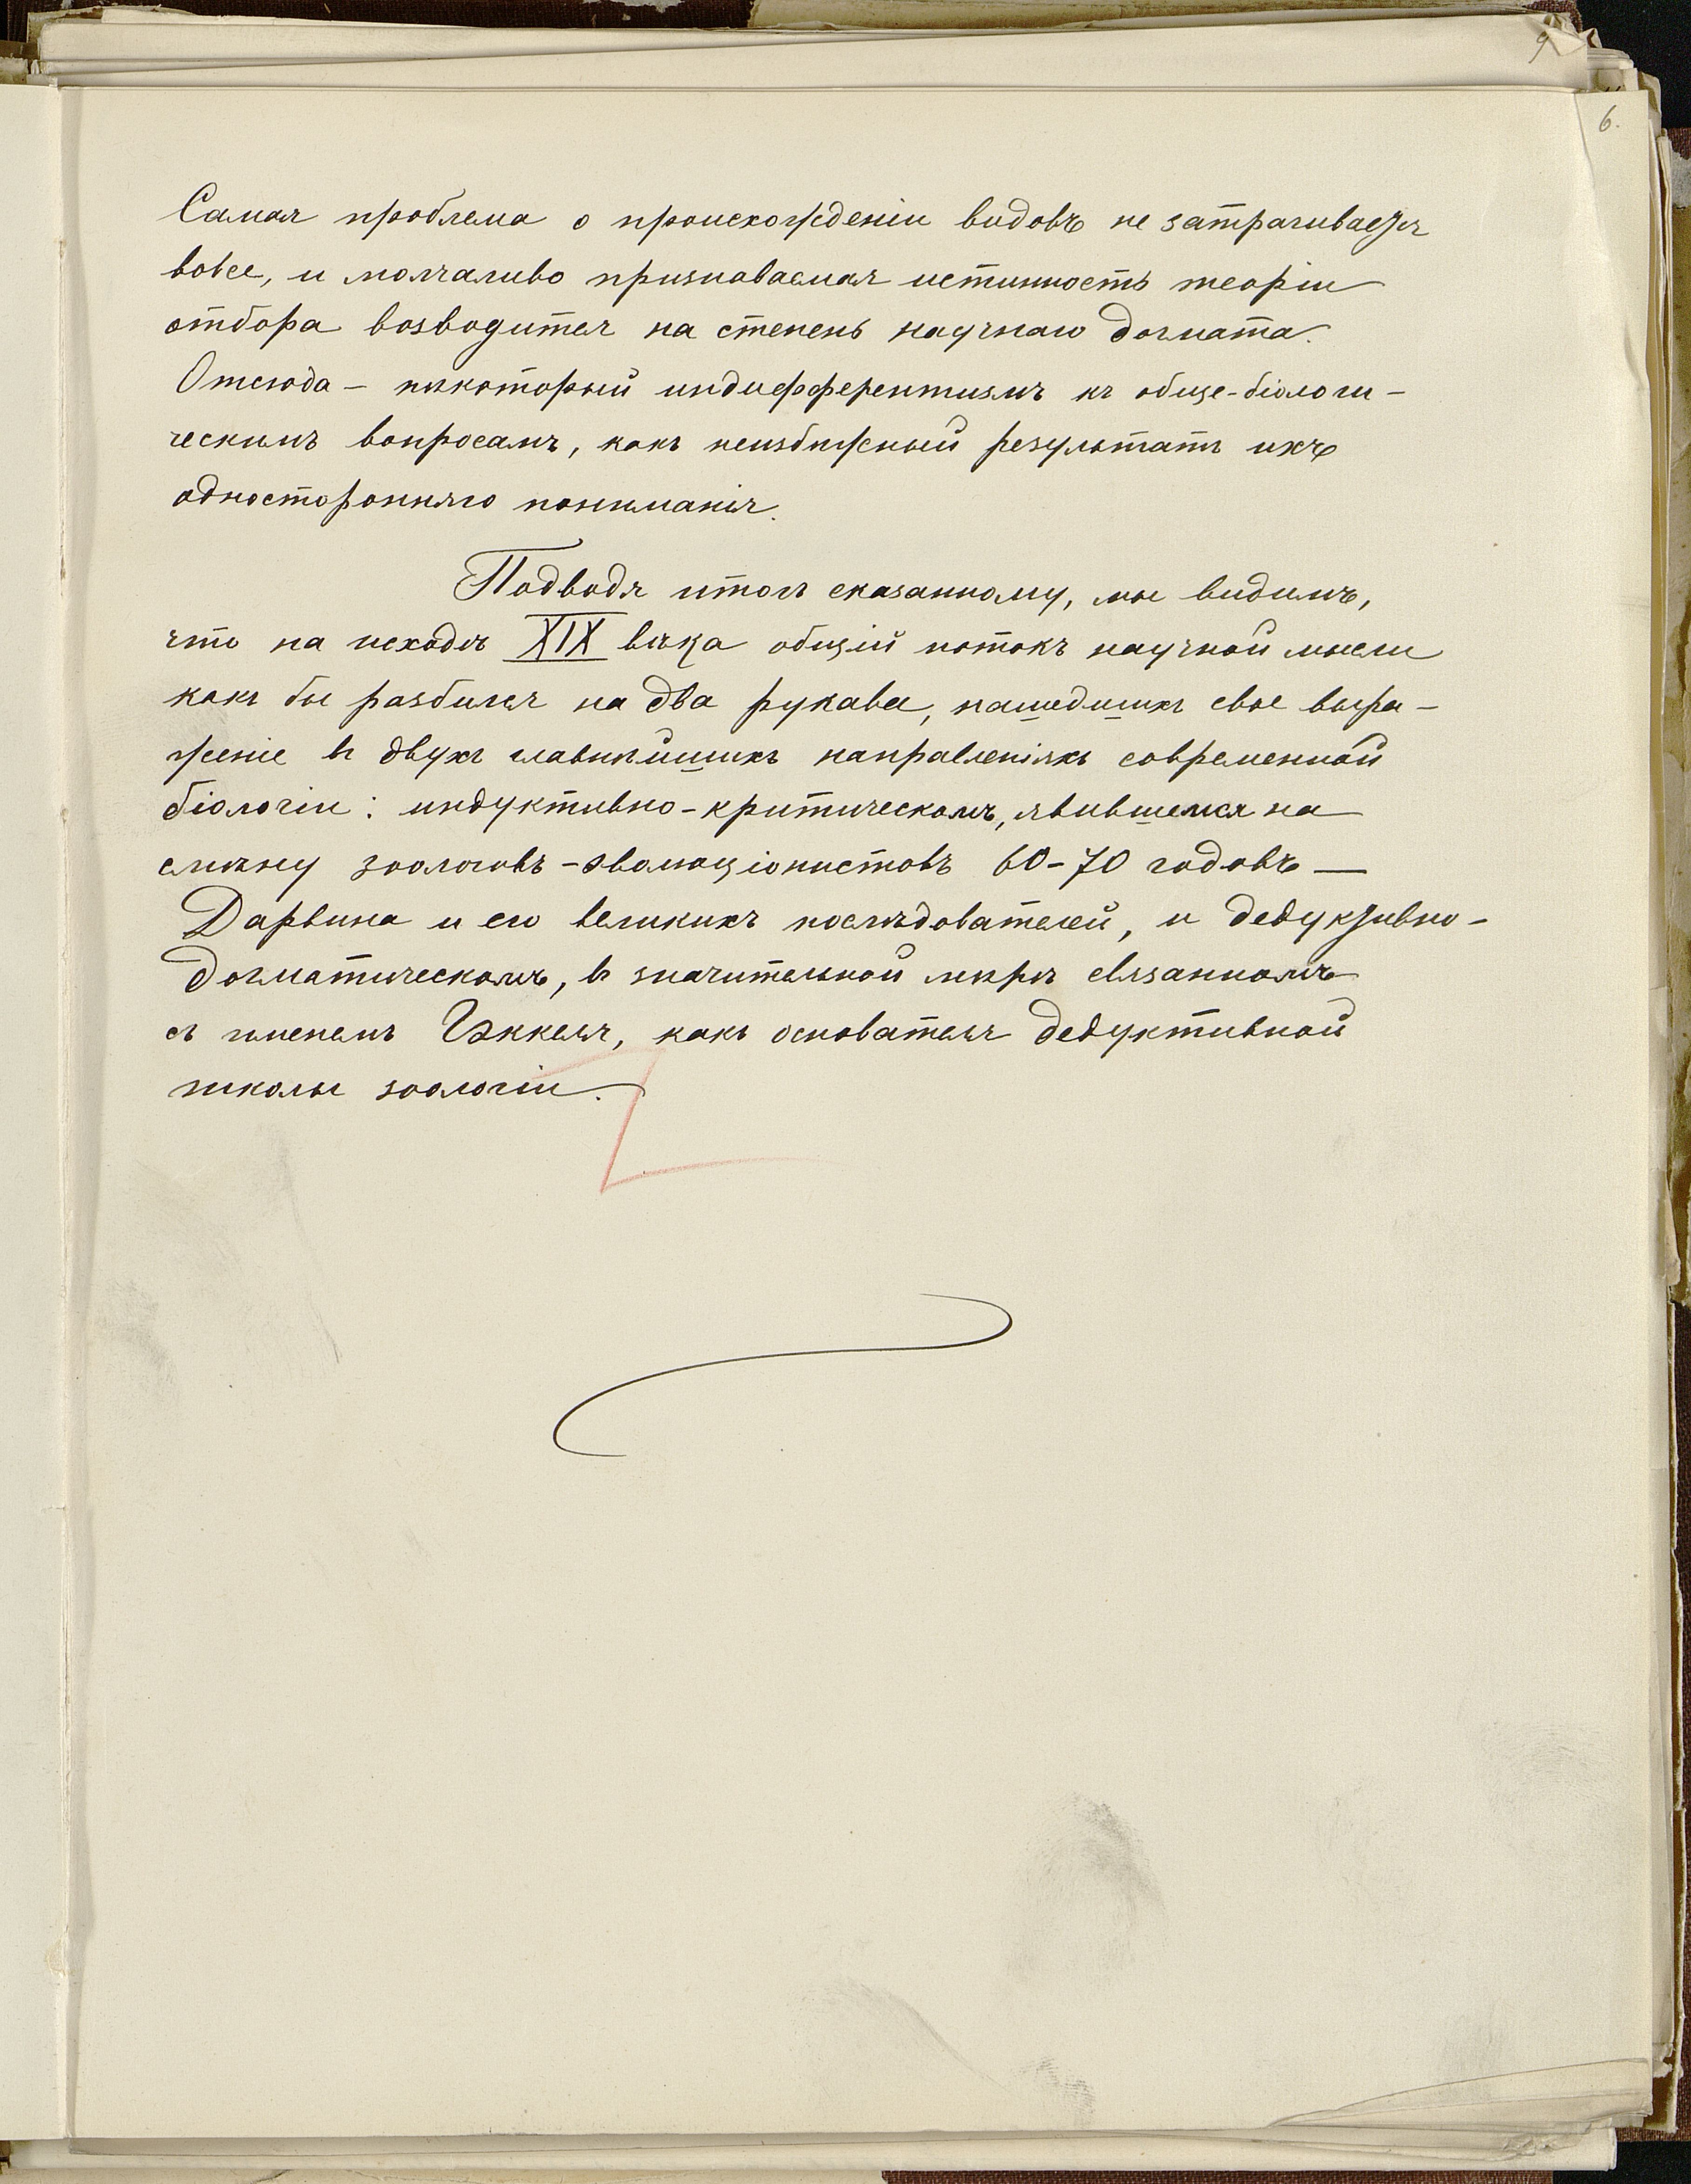 9
6.
Самая проблема о происхожденіи видовъ не затрагивается
вовсе, и молчаливо признаваемая истинность теоріи
отбора возводится на степень научнаго догмата.
Отсюда – нѣкоторый индифферентизмъ къ обще-біологи-
ческимъ вопросамъ, какъ неизбѣжный результатъ ихъ
односторонняго пониманія.
Подводя итогъ сказанному, мы видимъ,
что на исходѣ XIX вѣка общій потокъ научной мысли
какъ бы разбился на два рукава, нашедшихъ свое выра-
женіе въ двухъ главнѣйшихъ направленіяхъ современной
біологіи: индуктивно-критическомъ, явившемся на
смѣну зоологовъ-эволюціонистовъ 60-70 годовъ —
Дарвина и его великихъ послѣдователей, и дедуктивно-
догматическомъ, въ значительной мѣрѣ связанномъ
съ именемъ Гэккеля, какъ основателя дедуктивной
школы зоологіи.